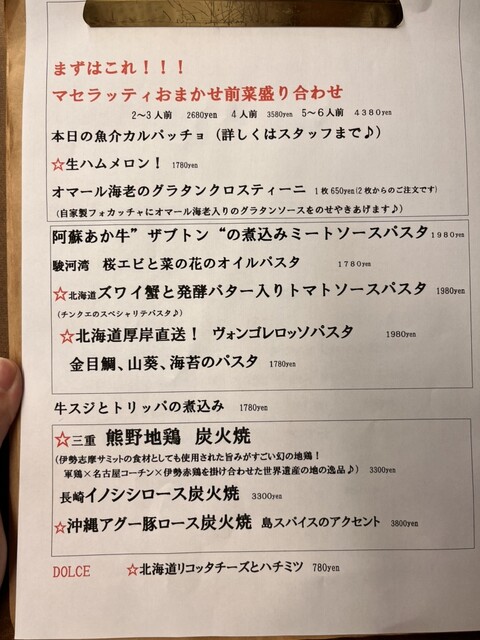 まずはこれ！！！
マセラッティおまかせ前菜盛り合わせ
2～3人前 2680yen 4人前 3580yen 5～6人前 4380yen
本日の魚介カルパッチョ（詳しくはスタッフまで♪）
☆生ハムメロン！ 1780yen
オマール海老のグラタンクロスティーニ 1枚650yen(2枚からのご注文です)
（自家製フォカッチャにオマール海老入りのグラタンソースをのせやきあげます♪）
阿蘇あか牛”ザブトン“の煮込みミートソースパスタ1980yen
駿河湾 桜エビと菜の花のオイルパスタ 1780yen
☆北海道ズワイ蟹と発酵バター入りトマトソースパスタ 1980yen
（チンクエのスペシャリテパスタ♪）
☆北海道厚岸直送！ ヴォンゴレロッソパスタ 1980yen
金目鯛、山葵、海苔のパスタ 1780yen
牛スジとトリッパの煮込み 1780yen
☆三重 熊野地鶏 炭火焼
（伊勢志摩サミットの食材としても使用された旨みがすごい幻の地鶏！
軍鶏×名古屋コーチン×伊勢赤鶏を掛け合わせた世界遺産の地の逸品♪） 3300yen
長崎イノシシロース炭火焼 3300yen
☆沖縄アグー豚ロース炭火焼 島スパイスのアクセント 3800yen
DOLCE ☆北海道リコッタチーズとハチミツ 780yen